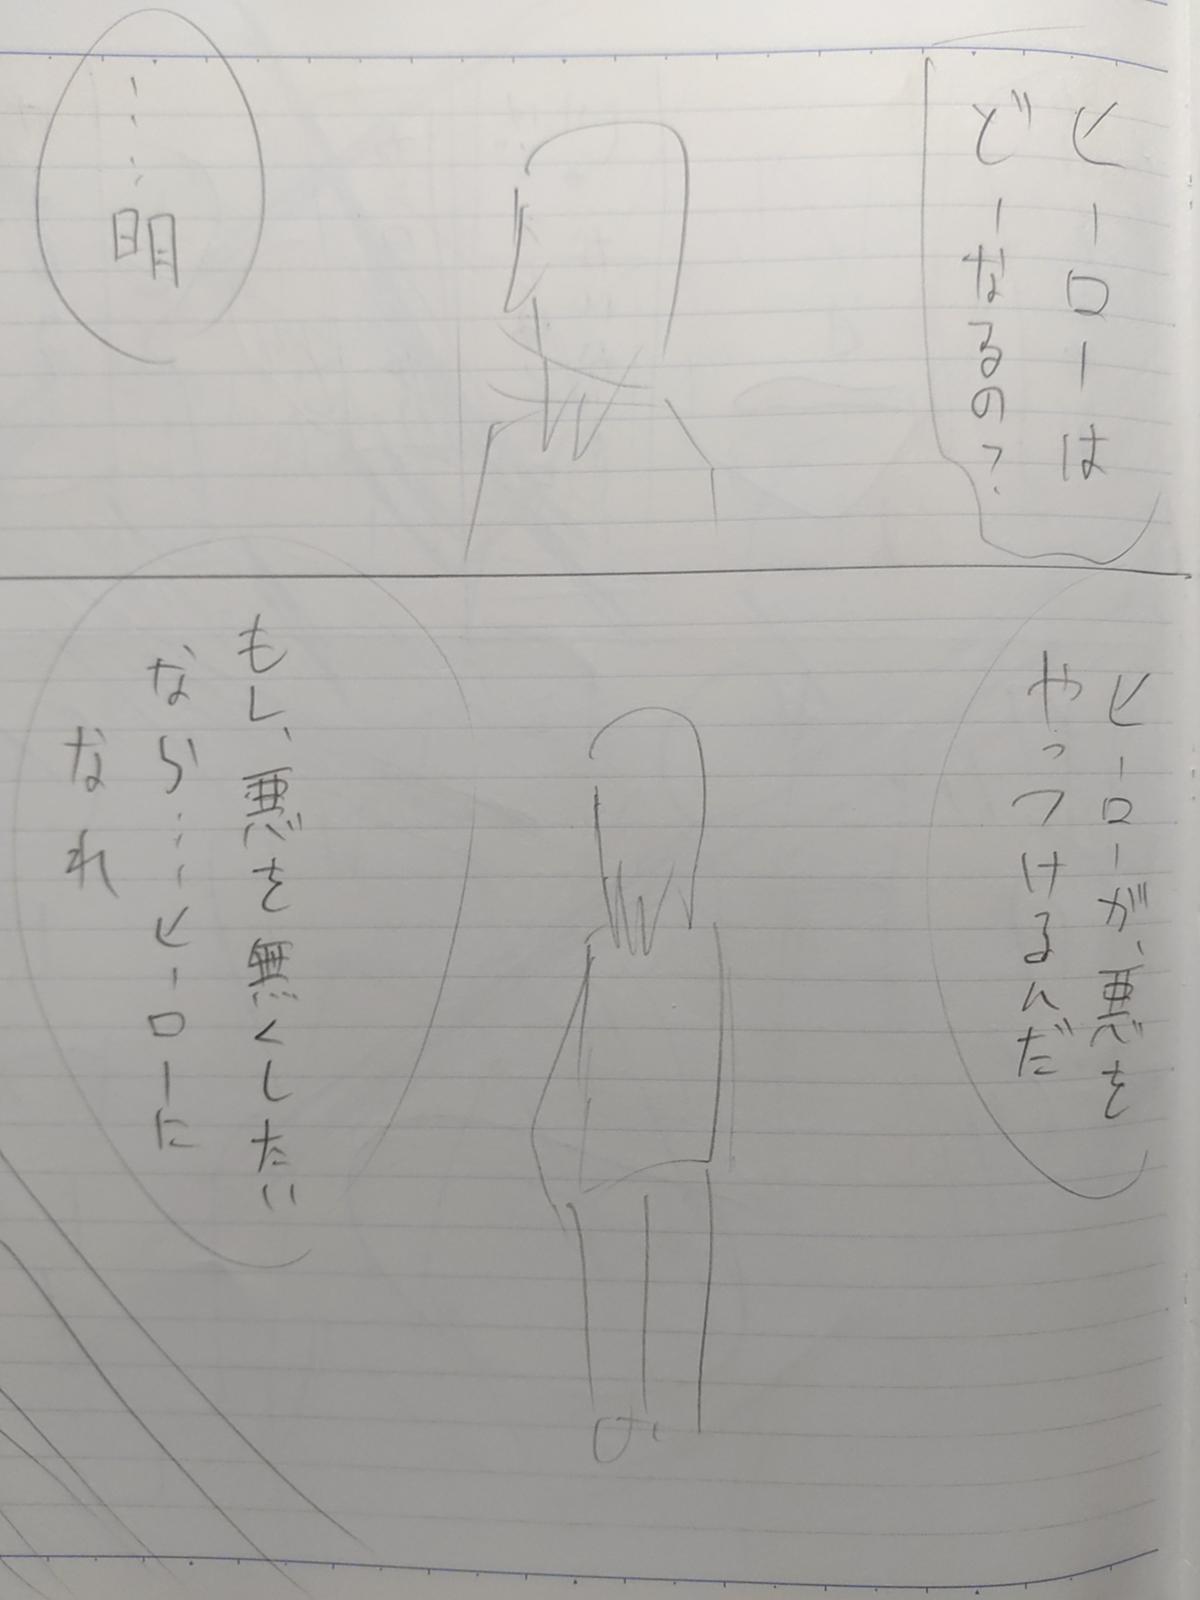 ヒーローは
どーなるの?
……明
ヒーローが、悪を
やっつけるんだ
もし、悪を無くしたい
なら……ヒーローに
なれ